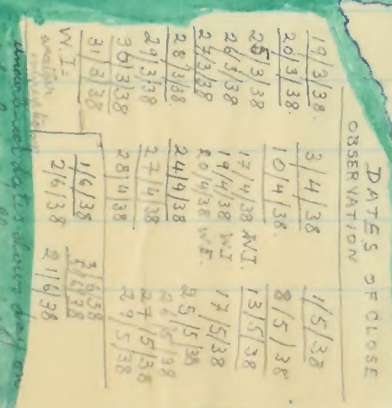 DATES OF CLOSE
OBSERVATION
19/3/38.
20/3/38.
25/3/38
26/3/38
27/3/38
28/3/38.
29/3/38
30/3/38
31/3/38
W I =
weather
3/4/38
10/4/38.
17/4/38 N.I.
19/4/38 W I
20/4/38 W.E.
24/4/38
27/4/38
28/4/38
1/6/38
2/6/38
1/5/38
8/5/38
13/5/38
17/5/38
25/5/38
26/5/38
27/5/38
29/5/38
3/6/38
21/6/38
dates days on